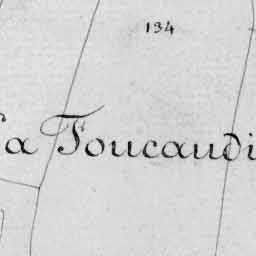 134
a Foucaudi